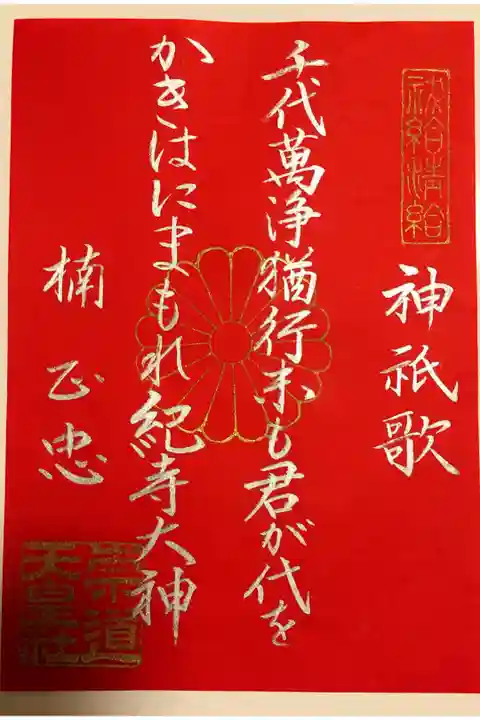 祓給清給
神祇歌
千代萬浄猶行末も君が代を
かきはにまもれ紀寺大神
楠正忠
崇道
天皇社